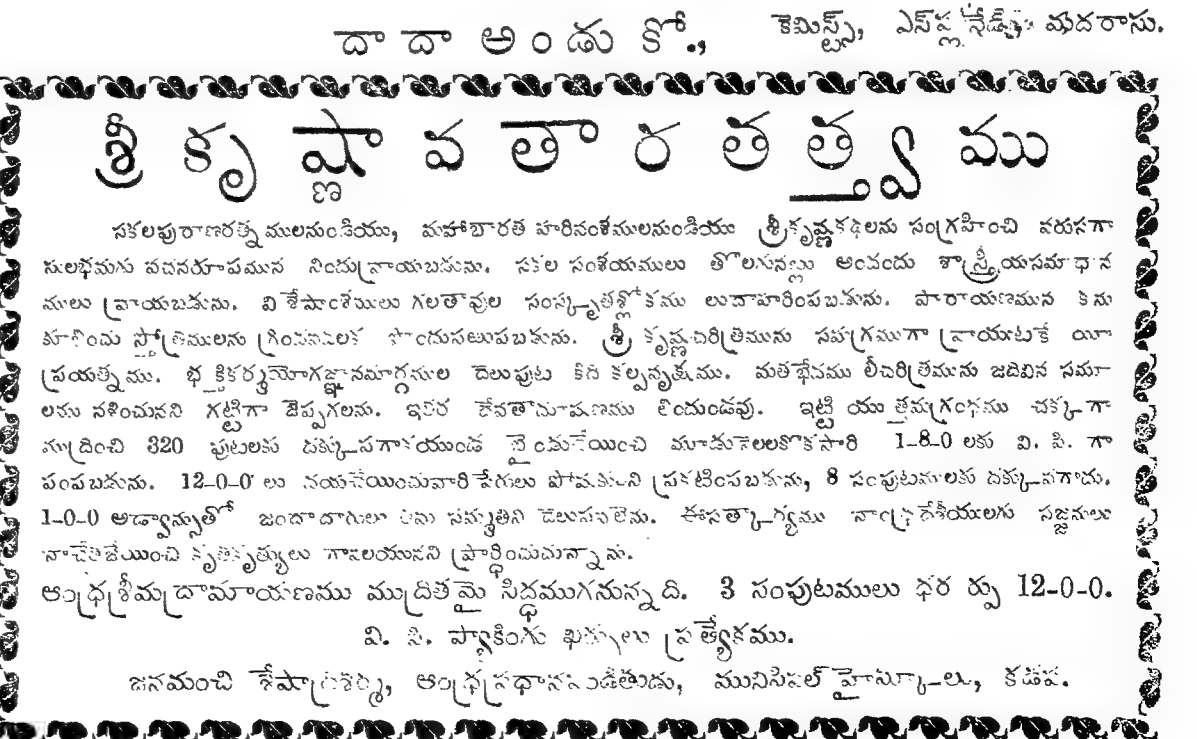 దాదా అండు కో., కెమిస్ట్స్, ఎస్‌ప్లనేడ్, మదరాసు.
శ్రీకృష్ణావతారతత్త్వము
సకలపురాణరత్నములనుండియు, మహాభారత హరివంశములనుండియు శ్రీకృష్ణకథలను సంగ్రహించి వరుసగా
సులభమగు వచనరూపమున నిందు వ్రాయబడును. సకల సంశయములు తొలగునట్లు అందందు శాస్త్రీయసమాధాన
ములు వ్రాయబడును. విశేషాంశములు గలతావుల సంస్కృతశ్లోకము లుదాహరింపబడును. పారాయణమున కను
కూలించు స్తోత్రములను పొందుసలుపబడును. శ్రీ కృష్ణచరిత్రమును సమగ్రముగా వ్రాయుటకే యీ
ప్రయత్నము. భక్తికర్మయోగజ్ఞానమార్గముల దెలుపుట కిది కల్పవృక్షము. మతభేదము లీచరిత్రమును జదివిన సమూ
లము నశించునని గట్టిగా జెప్పగలను. ఇతర దేవతాదూషణము లిందుండవు. ఇట్టి యుత్తమగ్రంథము చక్కగా
ముద్రించి 320 పుటలకు దక్కువగాకయుండ బైండుచేయించి మూడునెలలకొకసారి 1-8-0 లకు వి. పి. గా
పంపబడును. 12-0-0 లు దయచేయించువారి పేరులు ప్రకటింపబడును, 8 సంపుటములకు దక్కువగాదు.
1-0-0 అడ్వాన్సుతో జందాదారులు తమ సమ్మతిని దెలుపవలెను. ఈసత్కార్యము నాంధ్రదేశీయులగు సజ్జనులు
నాచేతజేయించి కృతకృత్యులు గావలయునని ప్రార్థించుచున్నాను.
ఆంధ్రశ్రీమద్రామాయణము ముద్రితమై సిద్ధముగనున్నది. 3 సంపుటములు ధర ర్పు 12-0-0.
వి. పి. ప్యాకింగు ఖర్చులు ప్రత్యేకము.
జనమంచి శేషాద్రిశర్మ, ఆంధ్రప్రధానపండితుడు, మునిసిపల్ హైస్కూలు, కడప.